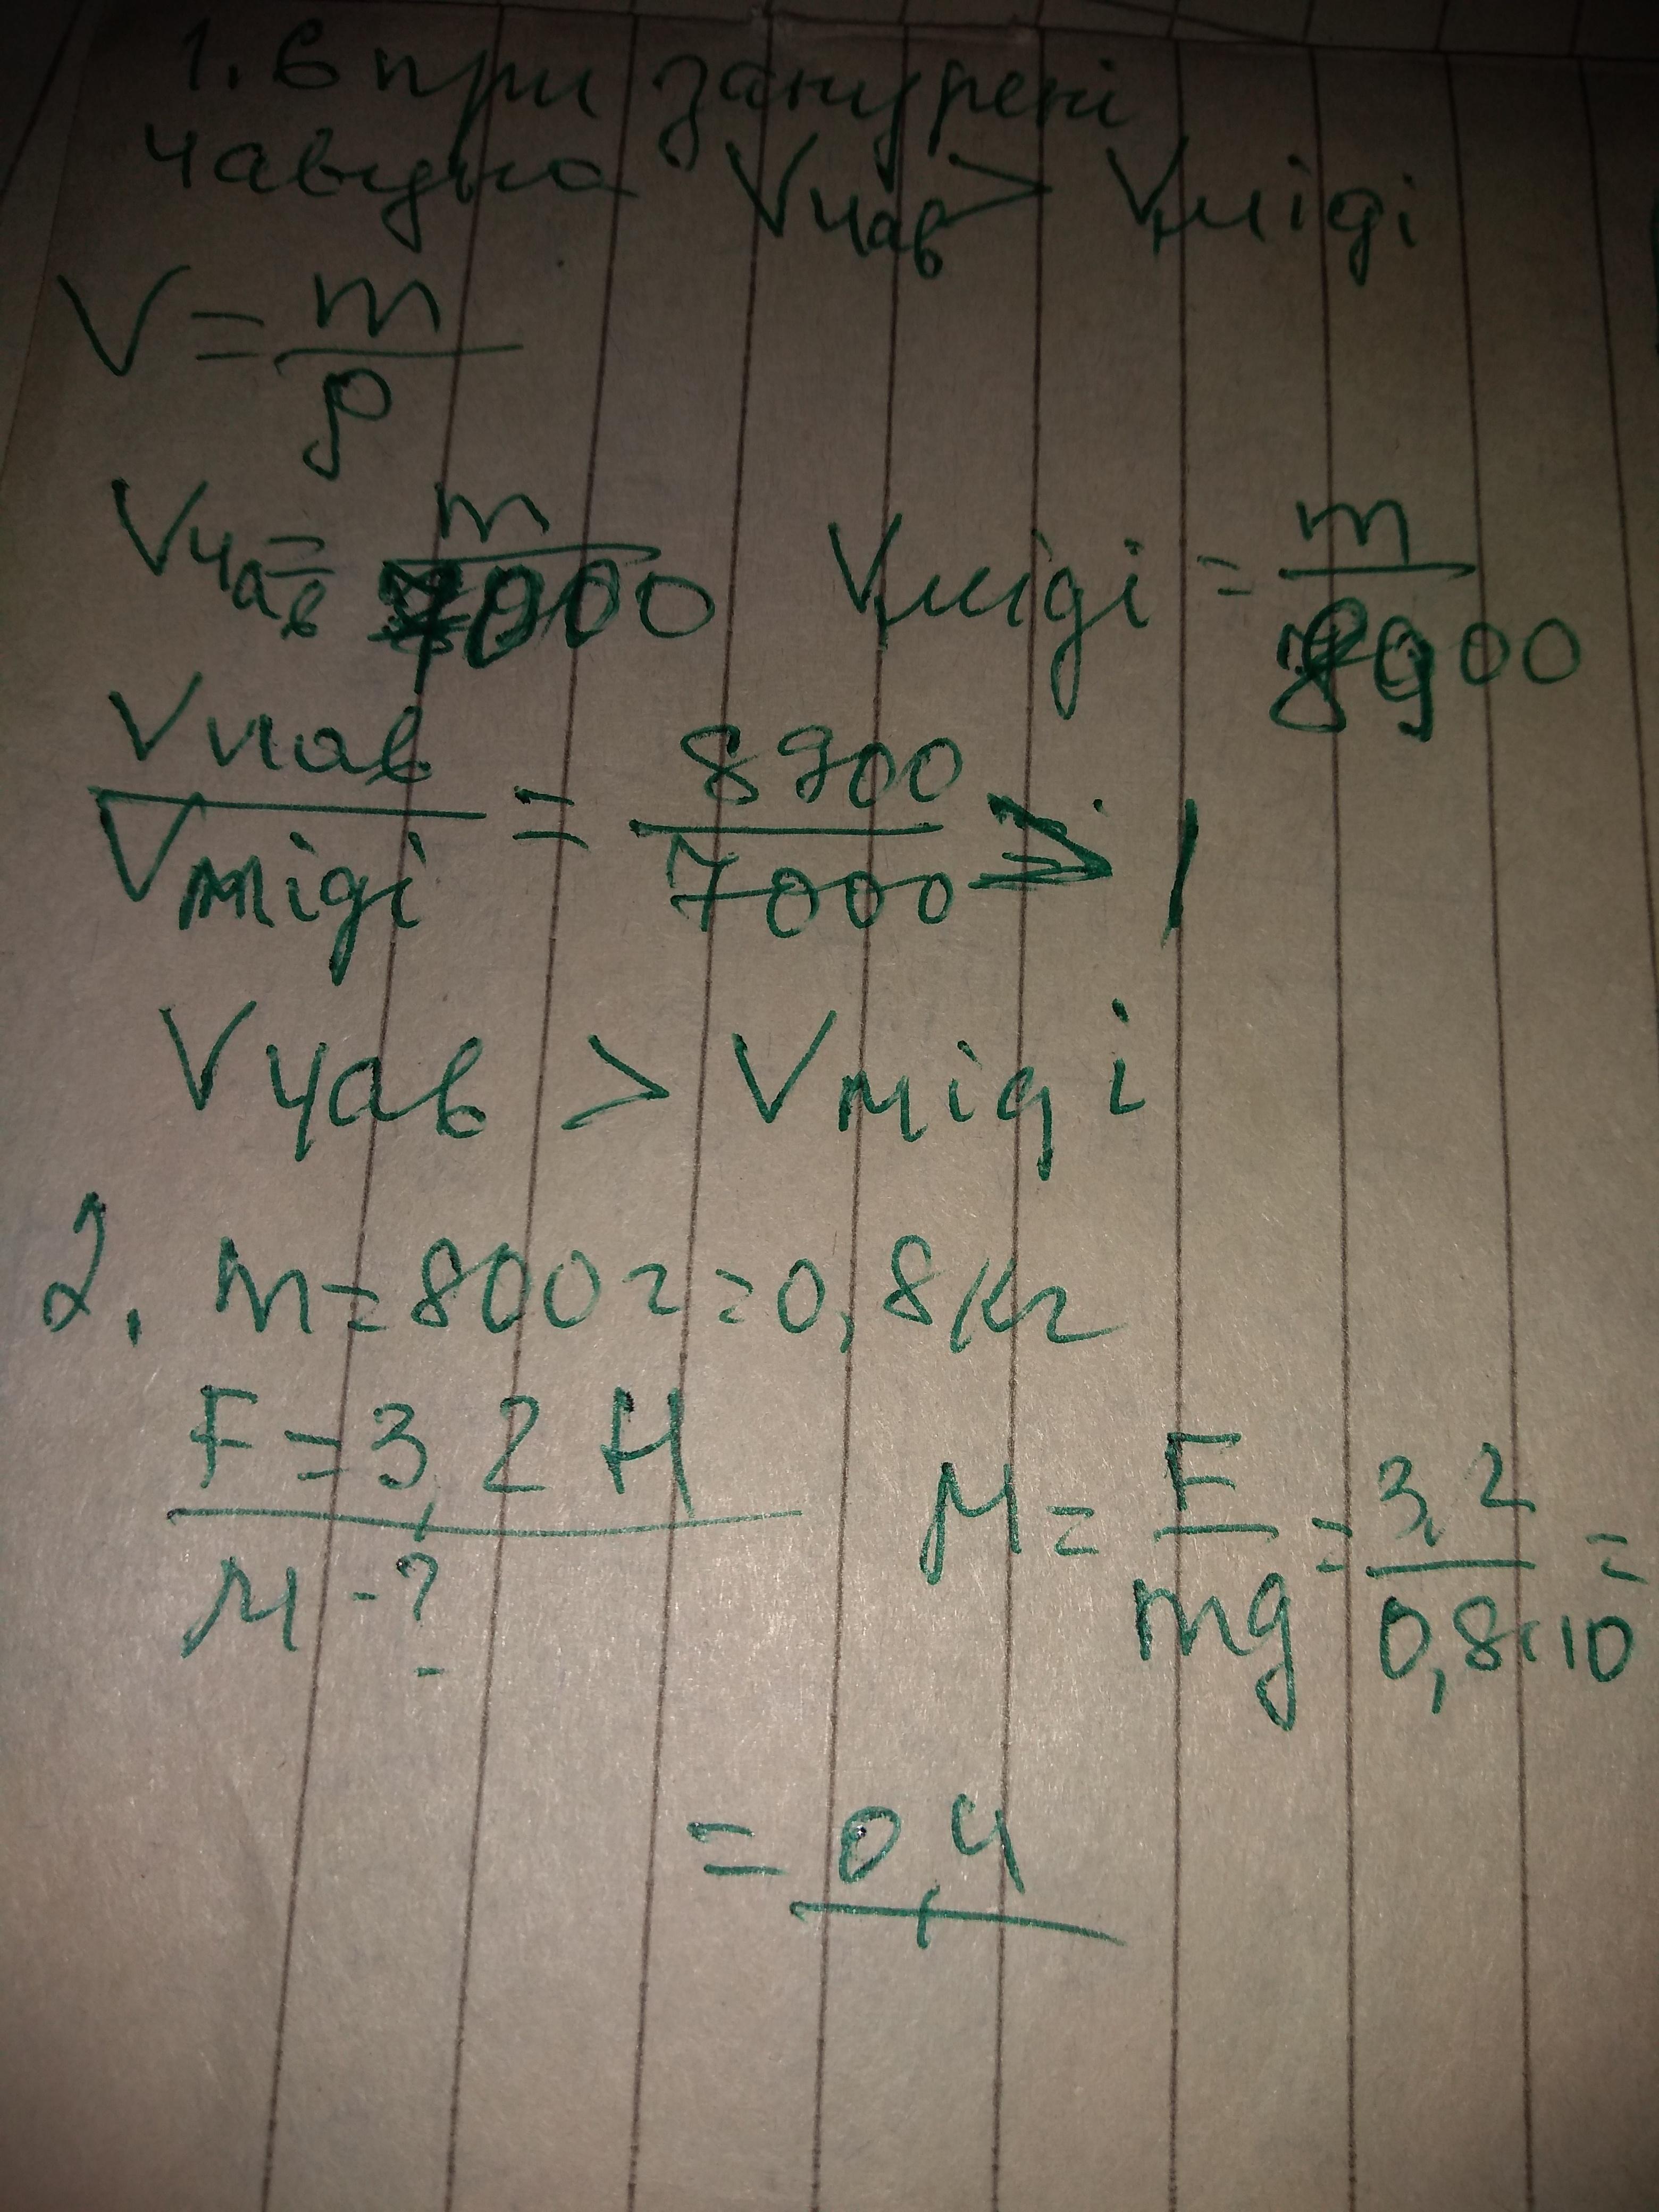 1. б при занурені
чавуна Vчав > Vміді
V = m/ρ
Vчав = m/7000 Vміді = m/8900
Vчав/Vміді = 8900/7000 > 1
Vчав > Vміді
2. m = 800г = 0,8кг
F = 3,2 Н
μ - ? μ = F/mg = 3,2/0,8·10 =
= 0,4